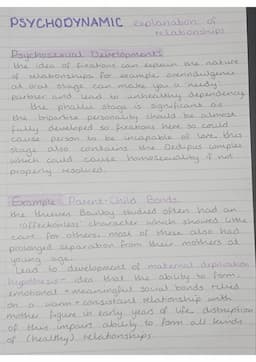 PSYCHODYNAMIC explanation of
relationships
Psychosexual Development
the idea of fixations can explain the nature
of relationships for example overindulgence
at oral stage can make you a needy
partner and lead to unhealthy dependency
the phallic stage is significant as
the tripartite personality should be almost
fully developed so fixations here so could
cause person to be incapable of love. this
stage also contains the Oedipus complex
which could cause homosexuality if not
properly resolved.
Example - Parent-Child Bonds
the thieves Bowlby studied often had an
'affectionless' character which showed little
care for others. most of these also had
prolonged separation from their mothers at
young age.
Lead to development of maternal deprivation
hypothesis - idea that the ability to form
emotional + meaningful social bonds relies
on a warm + consistent relationship with
mother figure in early years of life. disruption
of this impact ability to form all kinds
of (healthy) relationships.